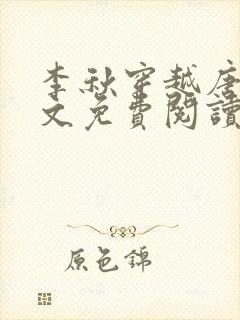 李秋穿越唐
文免費閱讀
原色錦